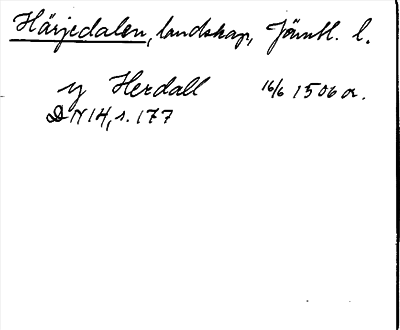 Härjedalen, landskap, Jämtl. l.
y Herdall 16/6 1506 or.
DN 14, s. 177